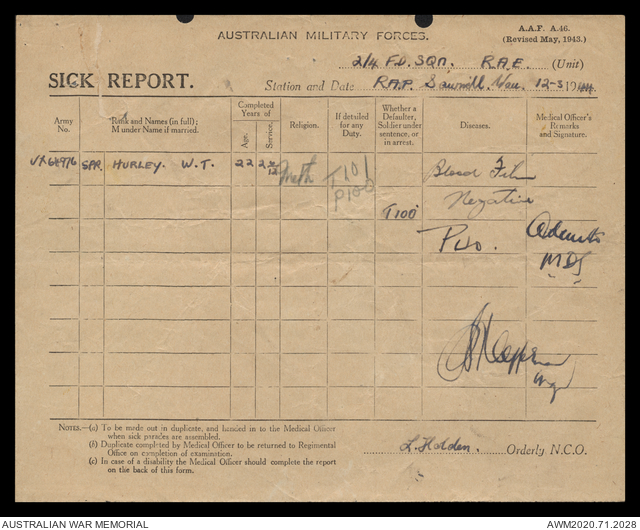 AUSTRALIAN MILITARY FORCES.
A.A.F. A.46.
(Revised May, 1943.)
2/4 FD. SQN. R.A.E. (Unit)
SICK REPORT.
Station and Date R.A.P. Sawmill. 12-3 1944
Army
No.
Rank and Names (in full);
M under Name if married.
Completed
Years of
Age.
Service.
Religion.
If detailed
for any
Duty.
Whether a
Defaulter,
Soldier under
sentence, or
in arrest.
Diseases.
Medical Officer's
Remarks
and Signature.
SPR. HURLEY. W.T. 22 2 2/12 Meth T 101 Blood Film
P100
Negative
T100
PUO. Admit
MDS
NOTES.—(a) To be made out in duplicate, and handed in to the Medical Officer
when sick parades are assembled.
(b) Duplicate completed by Medical Officer to be returned to Regimental
Office on completion of examination.
(c) In case of a disability the Medical Officer should complete the report
on the back of this form.
L. Holden. Orderly N.C.O.
AUSTRALIAN WAR MEMORIAL
AWM2020.71.2028